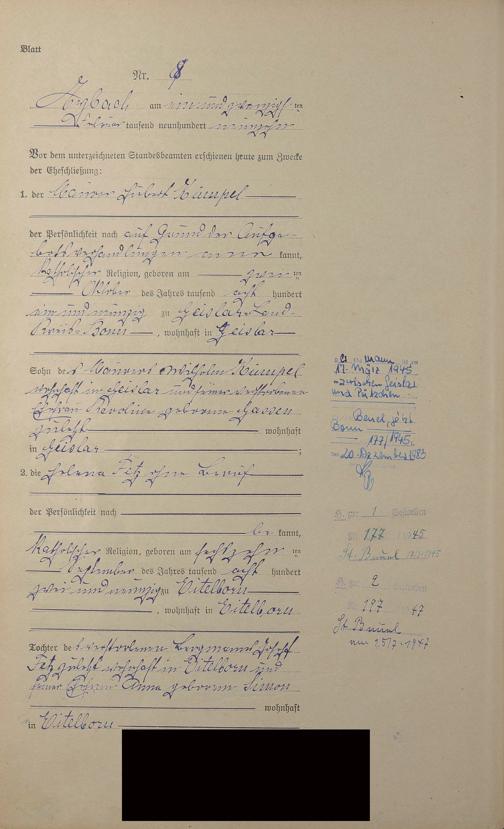 Blatt
Nr. 8
Arzbach am ein und zwanzigsten
Februar tausend neunhundert neunzehn
Vor dem unterzeichneten Standesbeamten erschienen heute zum Zwecke
der Eheschließung:
1. der Maurer Hubert Kümpel
der Persönlichkeit nach auf Grund der Aufge-
bots verhandlungen an er kannt,
katholischer Religion, geboren am zwei ten
Oktober des Jahres tausend acht hundert
ein und neunzig zu Geislar Land-
kreis Bonn, wohnhaft in Geislar
Sohn des Maurers Wilhelm Kümpel
wohnhaft in Geislar und seiner verstorbenen
Ehefrau Karoline geborene Gassen
zuletzt wohnhaft
in Geislar ;
2. die Helena Fetz ohne Beruf
der Persönlichkeit nach
be kannt,
katholischer Religion, geboren am sechzehn ten
September des Jahres tausend acht hundert
zwei und neunzig zu Eitelborn
, wohnhaft in Eitelborn
Tochter des verstorbenen Bergmanns Joseph
Fetz zuletzt wohnhaft in Eitelborn und
seiner Ehefrau Anna geborene Simon
wohnhaft
in Eitelborn
Ehemann
17. März 1945
zwischen Geislar
und Pützchen
Beuel, jetzt
Bonn
177/1945.
20. Dezember 1983
1
177 1945
St. Beuel
2
197 47
St. Beuel